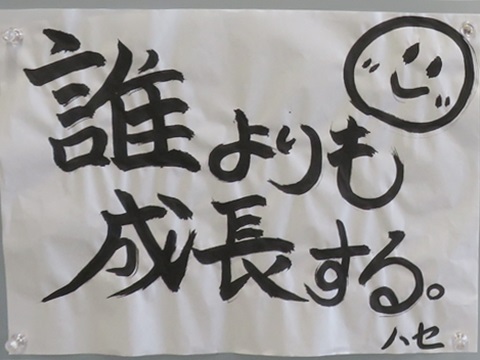 誰よりも
成長する。
ハセ